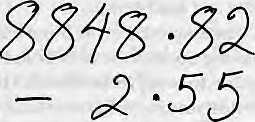 8848.82
- 2.55